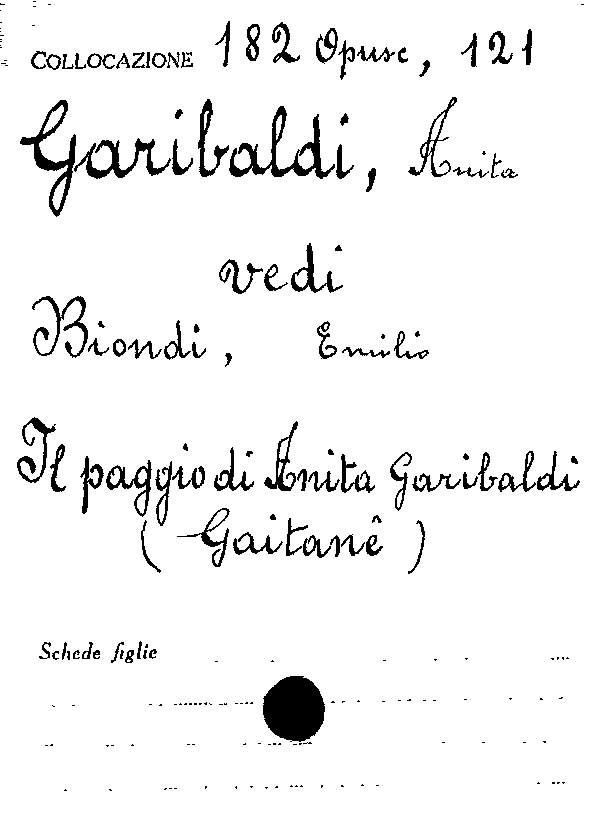 COLLOCAZIONE 182 Opusc, 121
Garibaldi, Anita
vedi
Biondi, Emilio
Il paggio di Anita Garibaldi
( Gaitanê )
Schede figlie